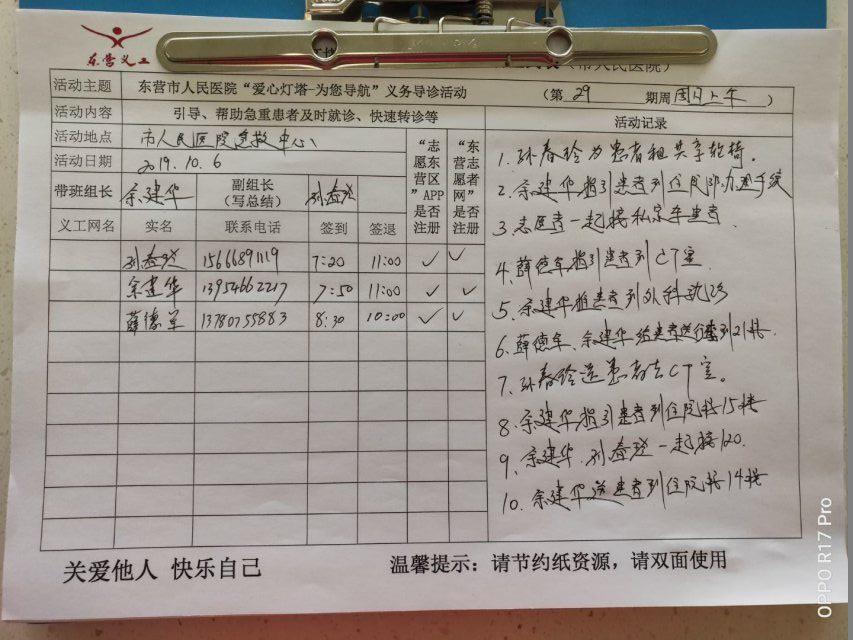 东营义工
活动主题 东营市人民医院“爱心灯塔-为您导航”义务导诊活动 （第 29 期周 周日上午 ）
活动内容 引导、帮助急重患者及时就诊、快速转诊等
活动地点 市人民医院急救中心
活动日期 2019.10.6
带班组长 余建华 副组长（写总结）
义工网名 实名 联系电话 签到 签退 “志愿东营区”APP是否注册 “东营志愿者网”是否注册
15666891119 7:20 11:00 ✓ ✓
余建华 13954662217 7:50 11:00 ✓ ✓
薛德军 13780755883 8:30 10:00 ✓ ✓
活动记录
1. 孙春玲为患者租共享轮椅.
2. 余建华指引患者到住院部办理手续
3. 志愿者一起接私家车患者
4. 薛德军指引患者到CT室
5. 余建华推患者到外科就诊
6. 薛德军、余建华给患者送行李到21楼.
7. 孙春玲送患者去CT室.
8. 余建华指引患者到住院楼15楼
9. 余建华, 一起接120.
10. 余建华送患者到住院楼14楼
关爱他人 快乐自己
温馨提示：请节约纸资源，请双面使用
OPPO R17 Pro